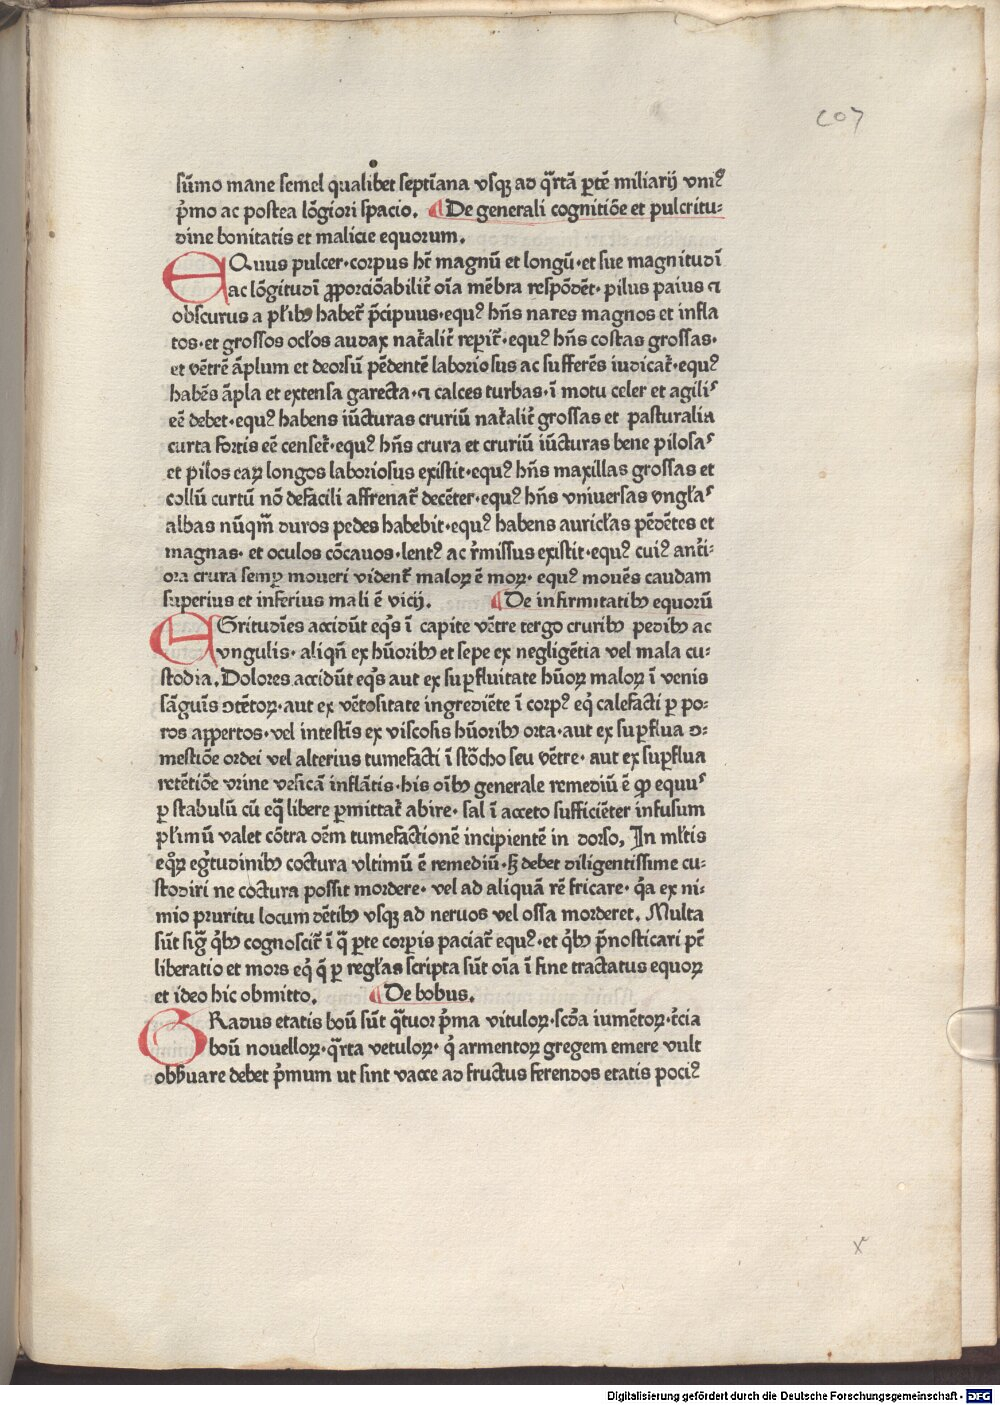 207
sūmo mane semel qualibet septīana vsqꝫ ad q̄rtā ꝑtē miliarij vniꝰ
p̄mo ac postea lōgiori spacio. ¶ De generali cognitiōe et pulcritu⸗
dine bonitatis et malicie equorum.
EQuus pulcer·corpus hr̄ magnū et longū·et sue magnitudī
ac lōgitudī ꝓporciōabilit̄ oīa mēbra respōdēt· pilus paius ⁊
obscurus a pl'ibꝫ habet̄ p̄cipuus·equꝰ hn̄s nares magnos et infla
tos·et grossos ocl'os audax nat̄alit̄ reꝑit̄·equꝰ hn̄s costas grossas·
et vētrē āplum et deorsū pēdentē laboriosus ac sufferēs iudicat̄·equꝰ
habēs āpla et extensa garecta·⁊ calces turbas·ī motu celer et agilis
eē debet·equꝰ habens iūcturas cruriū nat̄alit̄ grossas et pasturalia
curta fortis eē censet̄·equꝰ hn̄s crura et cruriū iūcturas bene pilosas
et pilos eaꝝ longos laboriosus existit·equꝰ hn̄s maxillas grossas et
collū curtū nō defacili affrenat̄ decēter·equꝰ hn̄s vniuersas vngl'as
albas nūqm̄ duros pedes habebit·equꝰ habens auricl'as pēdētes et
magnas· et oculos cōcauos·lentꝰ ac r̄missus existit·equꝰ cuiꝰ ant̄i⸗
ora crura semꝑ moueri vident̄ maloꝝ ē moꝝ· equꝰ mouēs caudam
superius et inferius mali ē vicij. ¶ De infirmitatibꝫ equorū
EGritudīes accidūt eqͥs ī capite vētre tergo cruribꝫ pedibꝫ ac
vngulis· aliqn̄ ex hūoribꝫ et sepe ex negligētia vel mala cu⸗
stodia. Dolores accidūt eqͥs aut ex suꝑfluitate hūoꝝ maloꝝ ī venis
sāguīs ꝯtētoꝝ·aut ex vētositate ingrediēte ī corpꝰ eqͥ calefacti ꝑ po⸗
ros apꝑtos·vel intestīs ex viscosis hūoribꝫ orta·aut ex suꝑflua ꝯ⸗
mestiōe ordei vel alterius tumefacti ī stōcho seu vētre· aut ex suꝑflua
retētiōe vrine vesicā inflātis·his oībꝫ generale remediū ē ꝙ equus
ꝑ stabulū cū eq̄ libere ꝑmittat̄ abire· sal ī acceto sufficiēter infusum
pl'imū valet cōtra oēm tumefactionē incipientē in dorso, In ml'tis
eqͦꝝ eg̓tudinibꝫ coctura vltimū ē remediū·sꝫ debet diligentissime cu⸗
stodiri ne coctura possit mordere· vel ad aliquā rē fricare· qͣa ex ni⸗
mio pruritu locum dētibꝫ vsqꝫ ad neruos vel ossa morderet. Multa
sūt sig̅ qͥbꝫ cognoscit̄ ī q̄ ꝑte corꝑis paciat̄ equꝰ·et qͥbꝫ p̄nosticari pt̄
liberatio et mors eqͥ q̄ ꝑ regl'as scripta sūt oīa ī fine tractatus equoꝝ
et ideo hic obmitto. ¶ De bobus.
GRadus etatis boū sūt qͣtuor p̄ma vituloꝝ·sc̄da iumētoꝝ·t̄cia
boū nouelloꝝ·qͣrta vetuloꝝ· qͥ armentoꝝ gregem emere vult
obẜuare debet p̄mum ut sint vacce ad fructus ferendos etatis pociꝰ
Digitalisierung gefördert durch die Deutsche Forschungsgemeinschaft - DFG